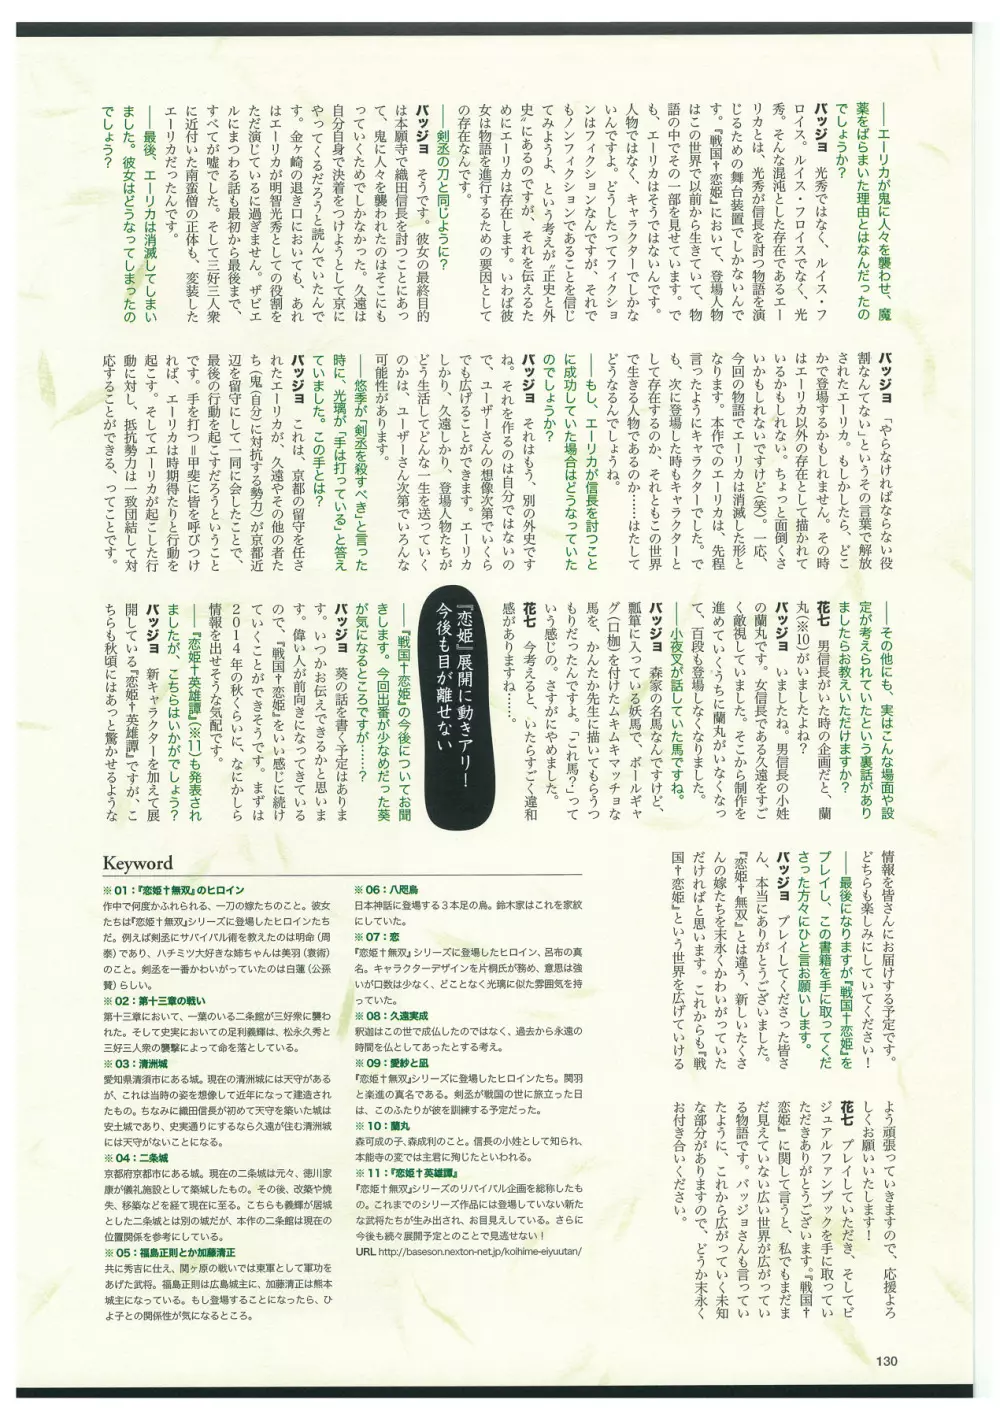 ――エーリカが鬼に人々を襲わせ、魔
薬をばらまいた理由とはなんだったの
でしょうか？
バッジョ　光秀ではなく、ルイス・フ
ロイス。ルイス・フロイスでなく、光
秀。そんな混沌とした存在であるエー
リカとは、光秀が信長を討つ物語を演
じるための舞台装置でしかないんで
す。『戦国†恋姫』において、登場人物
はこの世界で以前から生きていて、物
語の中でその一部を見せています。で
も、エーリカはそうではないんです。
人物ではなく、キャラクターでしかな
いんですよ。どうしたってフィクショ
ンはフィクションなんですが、それで
もノンフィクションであることを信じ
てみようよ、という考えが〝正史と外
史〟にはあるのですが、それを伝えるた
めにエーリカは存在します。いわば彼
女は物語を進行するための要因として
の存在なんです。
――剣丞の刀と同じように？
バッジョ　そうです。彼女の最終目的
は本願寺で織田信長を討つことにあっ
て、鬼に人々を襲われたのはそこにも
っていくためでしかなかった。久遠は
自分自身で決着をつけようとして京に
やってくるだろうと読んでいたんで
す。金ヶ崎の退き口においても、あれ
はエーリカが明智光秀としての役割を
ただ演じているに過ぎません。ザビエ
ルにまつわる話も最初から最後まで、
すべてが嘘でした。そして三好三人衆
に近付いた南蛮僧の正体も、変装した
エーリカだったんです。
――最後、エーリカは消滅してしまい
ました。彼女はどうなってしまったの
でしょう？
バッジョ　「やらなければならない役
割なんてない」というその言葉で解放
されたエーリカ。もしかしたら、どこ
かで登場するかもしれません。その時
はエーリカ以外の存在として描かれて
いるかもしれない。ちょっと面倒くさ
いかもしれないですけど（笑）。一応、
今回の物語でエーリカは消滅した形と
なります。本作でのエーリカは、先程
言ったようにキャラクターでした。で
も、次に登場した時もキャラクターと
して存在するのか、それともこの世界
で生きる人物であるのか……はたして
どうなるんでしょうね。
――もし、エーリカが信長を討つこと
に成功していた場合はどうなっていた
のでしょうか？
バッジョ　それはもう、別の外史です
ね。それを作るのは自分ではないの
で、ユーザーさんの想像次第でいくら
でも広げることができます。エーリカ
しかり、久遠しかり、登場人物たちが
どう生活してどんな一生を送っていく
のかは、ユーザーさん次第でいろんな
可能性があります。
――悠季が「剣丞を殺すべき」と言った
時に、光璃が「手は打っている」と答え
ていました。この手とは？
バッジョ　これは、京都の留守を任さ
れたエーリカが、久遠やその他の者た
ち（鬼（自分）に対抗する勢力）が京都近
辺を留守にして一同に会したことで、
最後の行動を起こすだろうということ
です。手を打つ＝甲斐に皆を呼びつけ
れば、エーリカは時期得たりと行動を
起こす。そしてエーリカが起こした行
動に対し、抵抗勢力は一致団結して対
応することができる、ってことです。
――その他にも、実はこんな場面や設
定が考えられていたという裏話があり
ましたらお教えいただけますか？
花七　男信長がいた時の企画だと、蘭
丸（※10）がいましたよね？
バッジョ　いましたね。男信長の小姓
の蘭丸です。女信長である久遠をすご
く敵視していました。そこから制作を
進めていくうちに蘭丸がいなくなっ
て、百段も登場しなくなりました。
――小夜叉が話していた馬ですね。
バッジョ　森家の名馬なんですけど、
瓢箪に入っている妖馬で、ボールギャ
グ（口枷）を付けたムキムキマッチョな
馬を、かんたか先生に描いてもらうつ
もりだったんですよ。「これ馬？」って
いう感じの。さすがにやめました。
花七　今考えると、いたらすごく違和
感がありますね……。
『恋姫』展開に動きアリ！
今後も目が離せない
――『戦国†恋姫』の今後についてお聞
きします。今回出番が少なめだった葵
が気になるところですが……？
バッジョ　葵の話を書く予定はありま
す。いつかお伝えできるかと思いま
す。偉い人が前向きになってきている
ので、『戦国†恋姫』をいい感じに続け
ていくことができそうです。まずは
2014年の秋くらいに、なにかしら
情報を出せそうな気配です。
――『恋姫†英雄譚』（※11）も発表され
ましたが、こちらはいかがでしょう？
バッジョ　新キャラクターを加えて展
開している『恋姫†英雄譚』ですが、こ
ちらも秋頃にはあっと驚かせるような
情報を皆さんにお届けする予定です。
どちらも楽しみにしていてください！
――最後になりますが『戦国†恋姫』を
プレイし、この書籍を手に取ってくだ
さった方々にひと言お願いします。
バッジョ　プレイしてくださった皆さ
ん、本当にありがとうございました。
『恋姫†無双』とは違う、新しいたくさ
んの嫁たちを末永くかわいがっていた
だければと思います。これからも『戦
国†恋姫』という世界を広げていける
よう頑張っていきますので、応援よろ
しくお願いいたします！
花七　プレイしていただき、そしてビ
ジュアルファンブックを手に取ってい
ただきありがとうございます。『戦国†
恋姫』に関して言うと、私でもまだま
だ見えていない広い世界が広がってい
る物語です。バッジョさんも言ってい
たように、これから広がっていく未知
な部分がありますので、どうか末永く
お付き合いください。
Keyword
※01：『恋姫†無双』のヒロイン
作中で何度かふれられる、一刀の嫁たちのこと。彼女
たちは『恋姫†無双』シリーズに登場したヒロインたち
だ。例えば剣丞にサバイバル術を教えたのは明命（周
泰）であり、ハチミツ大好きな姉ちゃんは美羽（袁術）
のこと。剣丞を一番かわいがっていたのは白蓮（公孫
賛）らしい。
※02：第十三章の戦い
第十三章において、一葉のいる二条館が三好衆に襲わ
れた。そして史実においての足利義輝は、松永久秀と
三好三人衆の襲撃によって命を落としている。
※03：清洲城
愛知県清須市にある城。現在の清洲城には天守がある
が、これは当時の姿を想像して近年になって建造され
たもの。ちなみに織田信長が初めて天守を築いた城は
安土城であり、史実通りにするなら久遠が住む清洲城
には天守がないことになる。
※04：二条城
京都府京都市にある城。現在の二条城は元々、徳川家
康が儀礼施設として築城したもの。その後、改築や焼
失、移築などを経て現在に至る。こちらも義輝が居城
とした二条城とは別の城だが、本作の二条館は現在の
位置関係を参考にしている。
※05：福島正則とか加藤清正
共に秀吉に仕え、関ヶ原の戦いでは東軍として軍功を
あげた武将。福島正則は広島城主に、加藤清正は熊本
城主になっている。もし登場することになったら、ひ
よ子との関係性が気になるところ。
※06：八咫烏
日本神話に登場する３本足の烏。鈴木家はこれを家紋
にしていた。
※07：恋
『恋姫†無双』シリーズに登場したヒロイン、呂布の真
名。キャラクターデザインを片桐氏が務め、意思は強
いが口数は少なく、どことなく光璃に似た雰囲気を持
っていた。
※08：久遠実成
釈迦はこの世で成仏したのではなく、過去から永遠の
時間を仏としてあったとする考え。
※09：愛紗と凪
『恋姫†無双』シリーズに登場したヒロインたち。関羽
と楽進の真名である。剣丞が戦国の世に旅立った日
は、このふたりが彼を訓練する予定だった。
※10：蘭丸
森可成の子、森成利のこと。信長の小姓として知られ、
本能寺の変では主君に殉じたといわれる。
※11：『恋姫†英雄譚』
『恋姫†無双』シリーズのリバイバル企画を総称したも
の。これまでのシリーズ作品には登場していない新た
な武将たちが生み出され、お目見えしている。さらに
今後も続々展開予定とのことで見逃せない！
URL http://baseson.nexton-net.jp/koihime-eiyuutan/
130